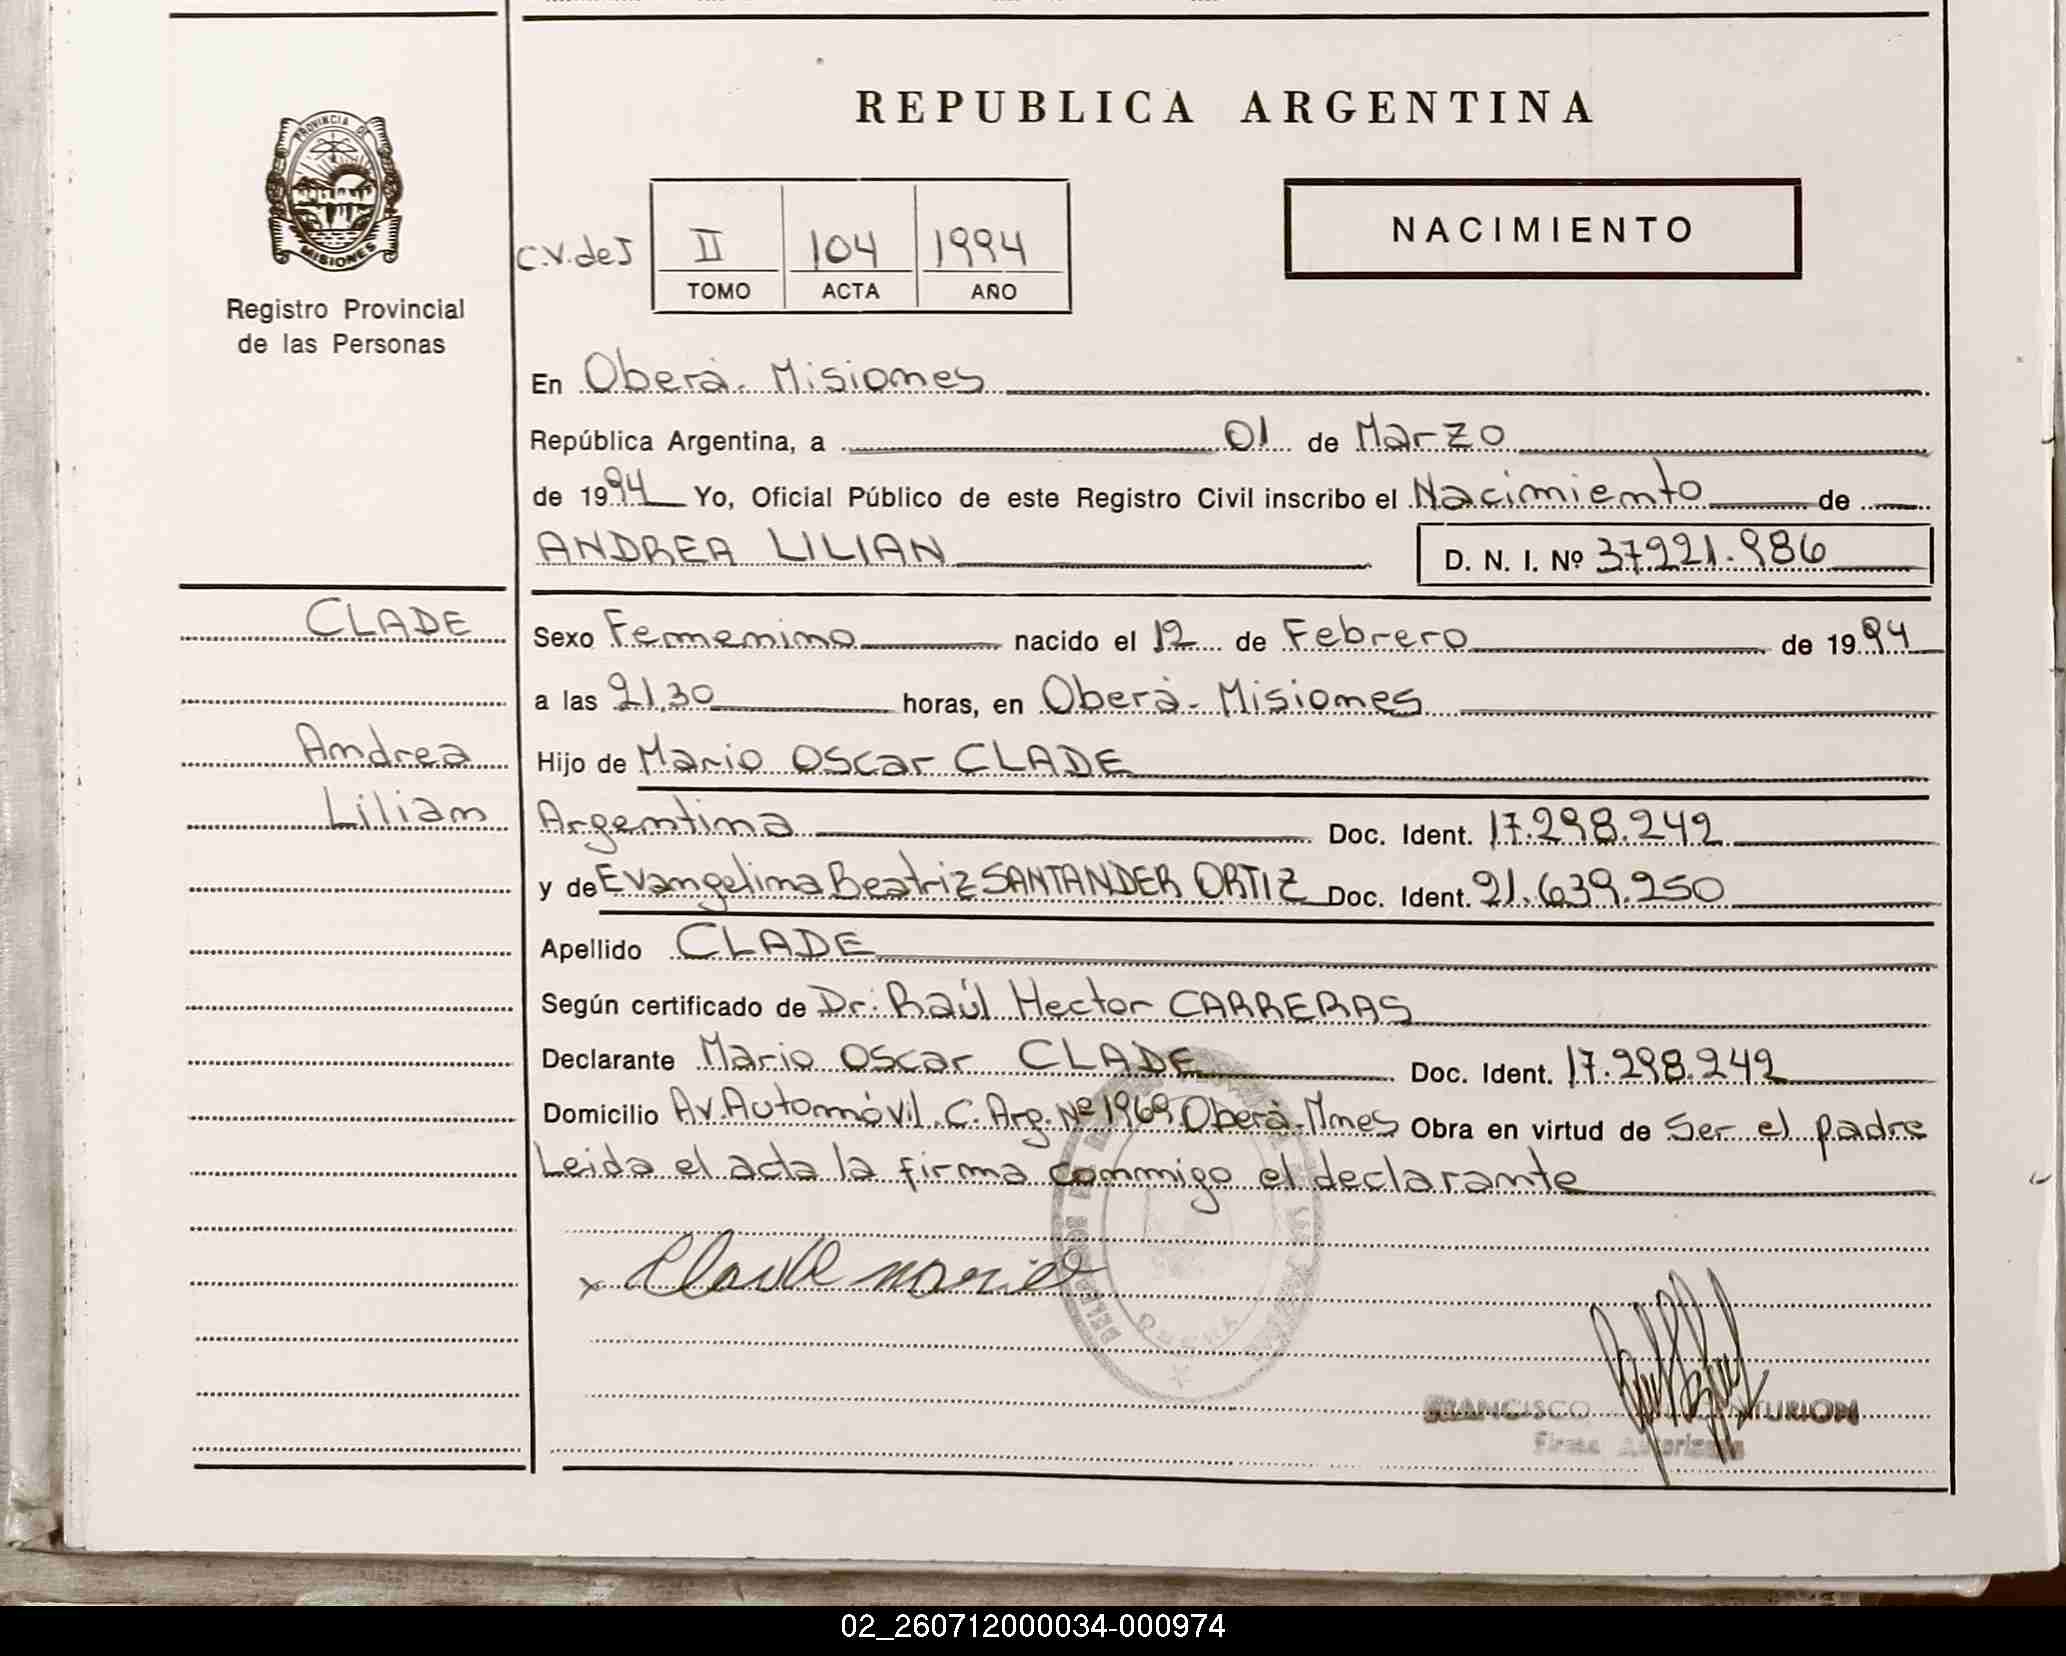 REPUBLICA ARGENTINA
PROVINCIA DE
MISIONES
Registro Provincial
de las Personas
NACIMIENTO
C.V.deJ II 104 1994
TOMO ACTA AÑO
En Oberà. Misiones
República Argentina, a 01 de Marzo
de 1994 Yo, Oficial Público de este Registro Civil inscribo el Nacimiento de
ANDREA LILIAN D. N. I. Nº 37921.986
CLADE
Andrea
Lilian
Sexo Femenino nacido el 12 de Febrero de 1994
a las 21,30 horas, en Oberà - Misiones
Hijo de Mario Oscar CLADE
Argentina Doc. Ident. 17.298.242
y de Evangelina Beatriz SANTANDER ORTIZ Doc. Ident. 21.639.250
Apellido CLADE
Según certificado de Dr: Raúl Hector CARRERAS
Declarante Mario Oscar CLADE Doc. Ident. 17.298.242
Domicilio Av. Automóvil. C. Arg. Nº 1969 Oberà-Mnes Obra en virtud de Ser el padre
Leida el acta la firma conmigo el declarante
x Clade Mario
FRANCISCO
Firma Autorizada
02_260712000034-000974